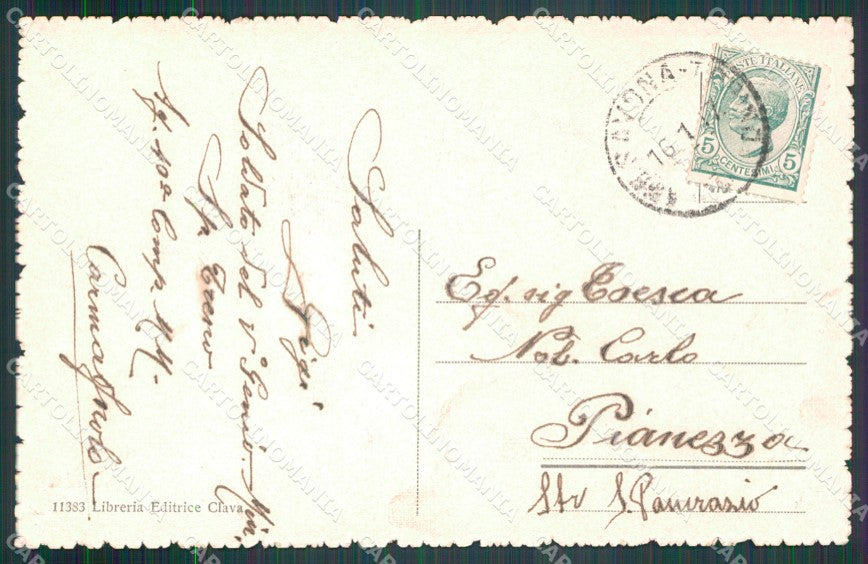 Saluti
Gigi
Soldato del V° Genio Min.
Sp. Treno
10a Comp. M.M.
Carmagnola
11383 Libreria Editrice Clava
POSTE ITALIANE
5 CENTESIMI 5
SAVONA - TORINO
16.1
Eg. sig Coesca
Nob. Carlo
Pianezza
S. Pancrazio
CARTOLINOMANIA